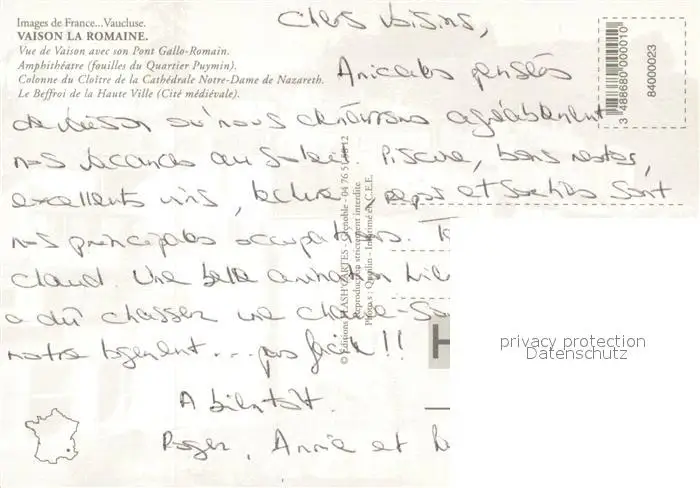 Images de France...Vaucluse.
VAISON LA ROMAINE.
Vue de Vaison avec son Pont Gallo-Romain.
Amphithéatre (fouilles du Quartier Puymin).
Colonne du Cloître de la Cathédrale Notre-Dame de Nazareth.
Le Beffroi de la Haute Ville (Cité médiévale).
3 488680 000010
84000023
Chers Voisins,
Amicales pensées
de Vaison où nous terminons agréablement
nos vacances au Soleil. Piscine, bons restos,
excellents vins, lecture, repos et Sorties Sont
nos principales occupations.
chaud. Une belle animation
a dû chasser une chauve-
notre logement... pas facile!!
A bientôt.
Roger, Annie et
© Editions FLASH'CARTES - Grenoble - 04 76
Reproduction strictement interdite
Photos : Quentin - Imprimé en C.E.E.
privacy protection
Datenschutz